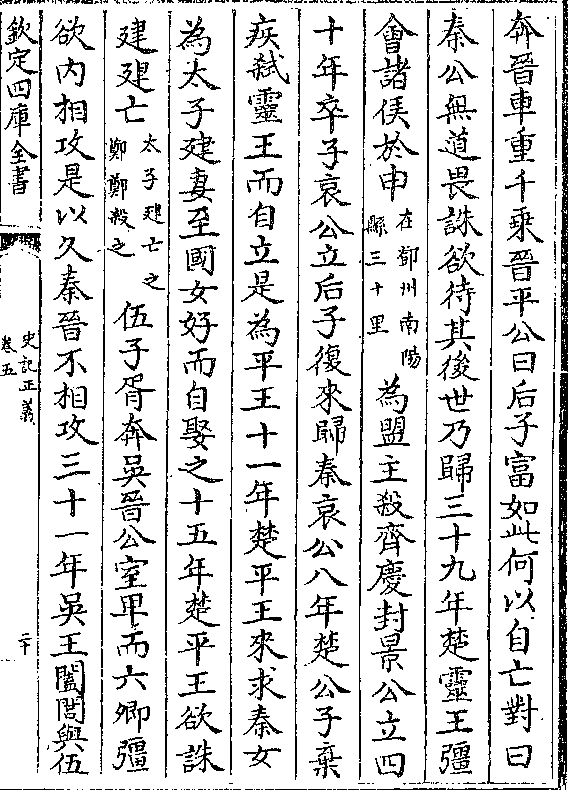 奔晉車重千乘晉平公曰后子富如此何以自亡對曰
秦公無道畏誅欲待其後世乃歸三十九年楚靈王彊
會諸侯於申
在鄧州南陽
縣三十里
為盟主殺齊慶封景公立四
十年卒子哀公立后子復來歸秦哀公八年楚公子棄
疾弑靈王而自立是為平王十一年楚平王來求秦女
為太子建妻至國女好而自娶之十五年楚平王欲誅
建建亡
太子建亡之
鄭鄭殺之
伍子胥奔吳晉公室卑而六卿彊
欲内相攻是以久秦晉不相攻三十一年吳王闔閭與伍
欽定四庫全書
史記正義
卷五
二十